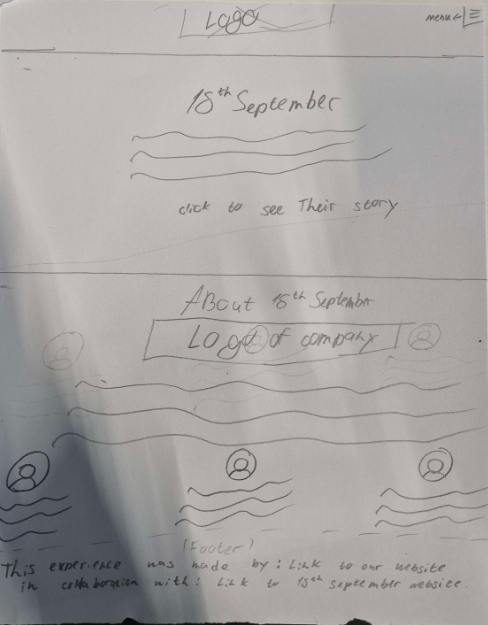 Logo
menu
18th September
click to see Their story
About 18th September
Logo of company
(Footer)
This experience was made by: Link to our website
in collaboration with: Link to 18th september website.